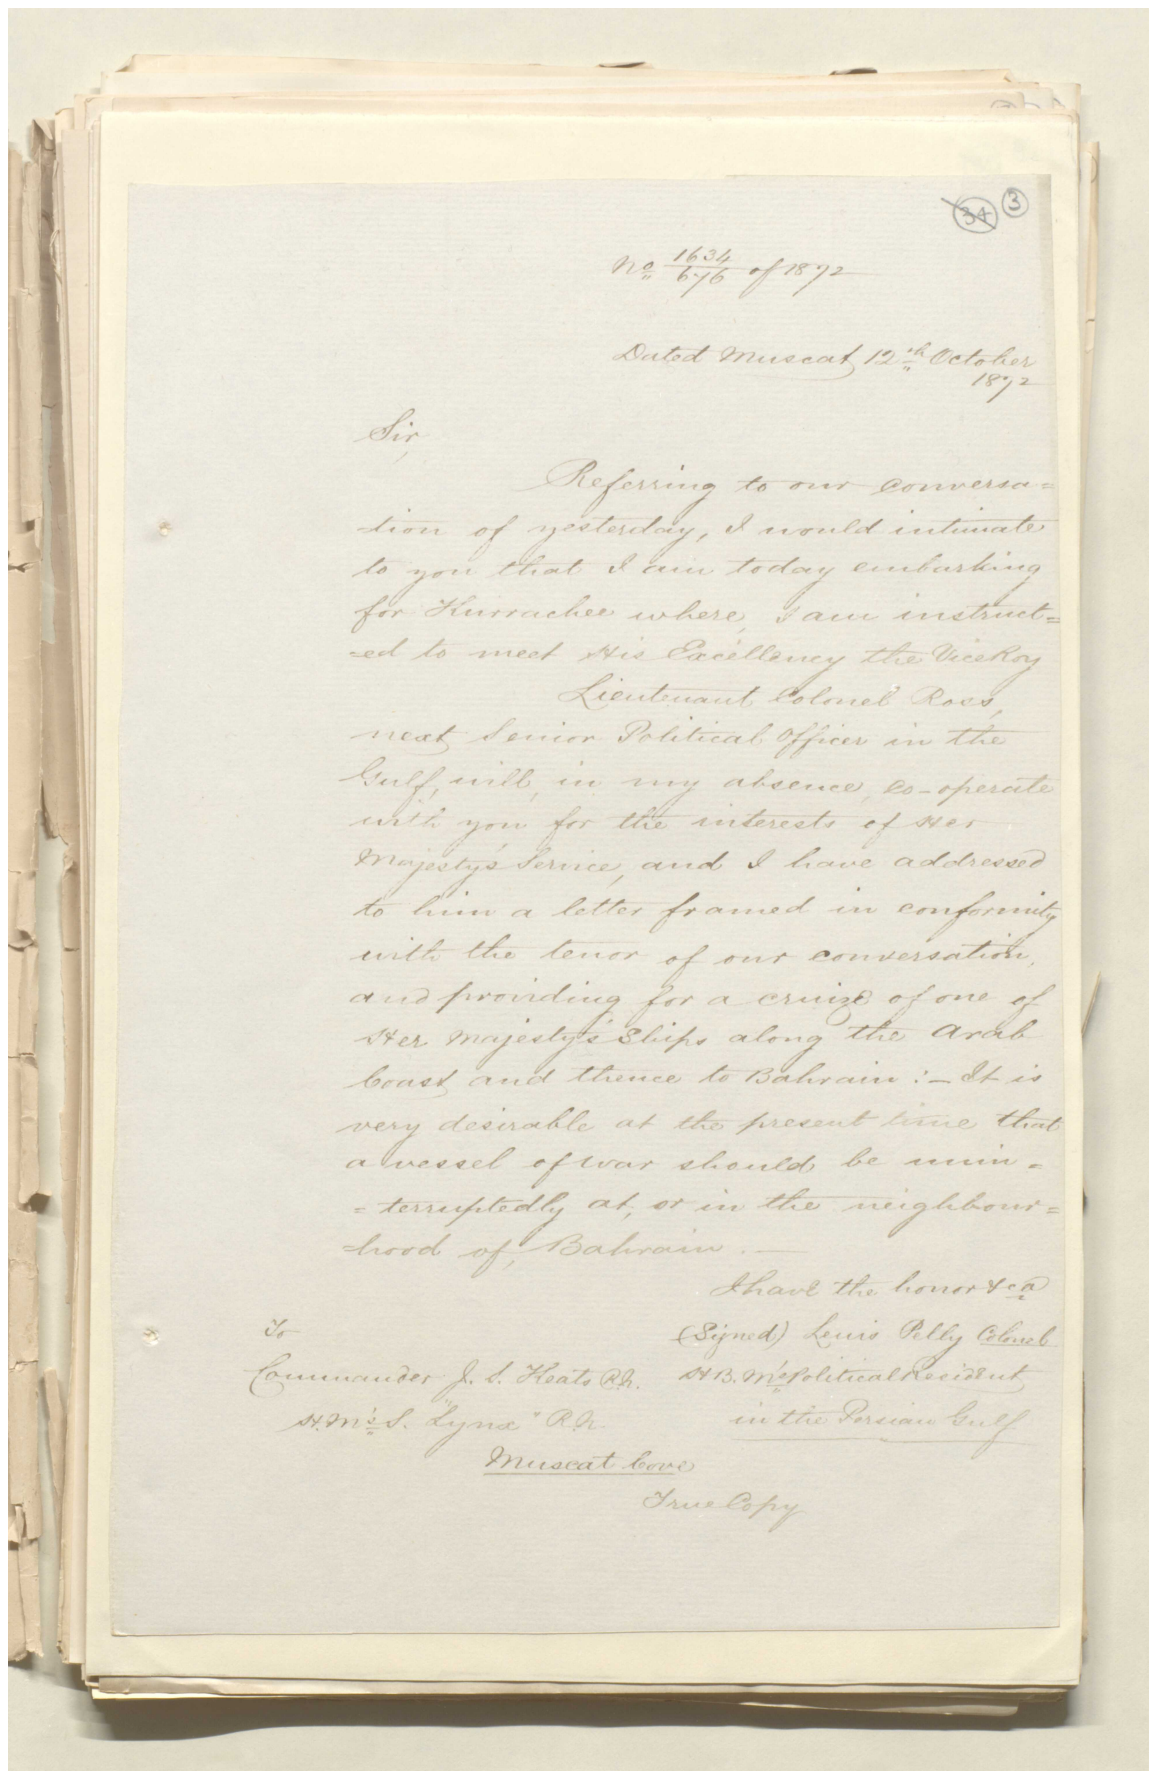 34 3
No 1634/676 of 1872
Dated Muscat 12th October
1872
Sir,
Referring to our conversa=
-tion of yesterday, I would intimate
to you that I am today embarking
for Kurrachee where, I am instruct=
=ed to meet His Excellency the ViceRoy
Lieutenant Colonel Ross,
next Senior Political Officer in the
Gulf, will, in my absence, co-operate
with you for the interests of Her
Majesty's Service, and I have addressed
to him a letter framed in conformity
with the tenor of our conversation,
and providing for a cruize of one of
Her Majesty's Ships along the Arab
Coast and thence to Bahrain :- It is
very desirable at the present time that
a vessel of war should be unin=
=terruptedly at, or in the neighbour=
=hood of, Bahrain. —
I have the honor &ca
To
(Signed) Lewis Pelly Colonel
Commander J. S. Keats R.N.
H.B.M's Political Resident
H.M's S. "Lynx" R.N.
in the Persian Gulf
Muscat Cove
True Copy